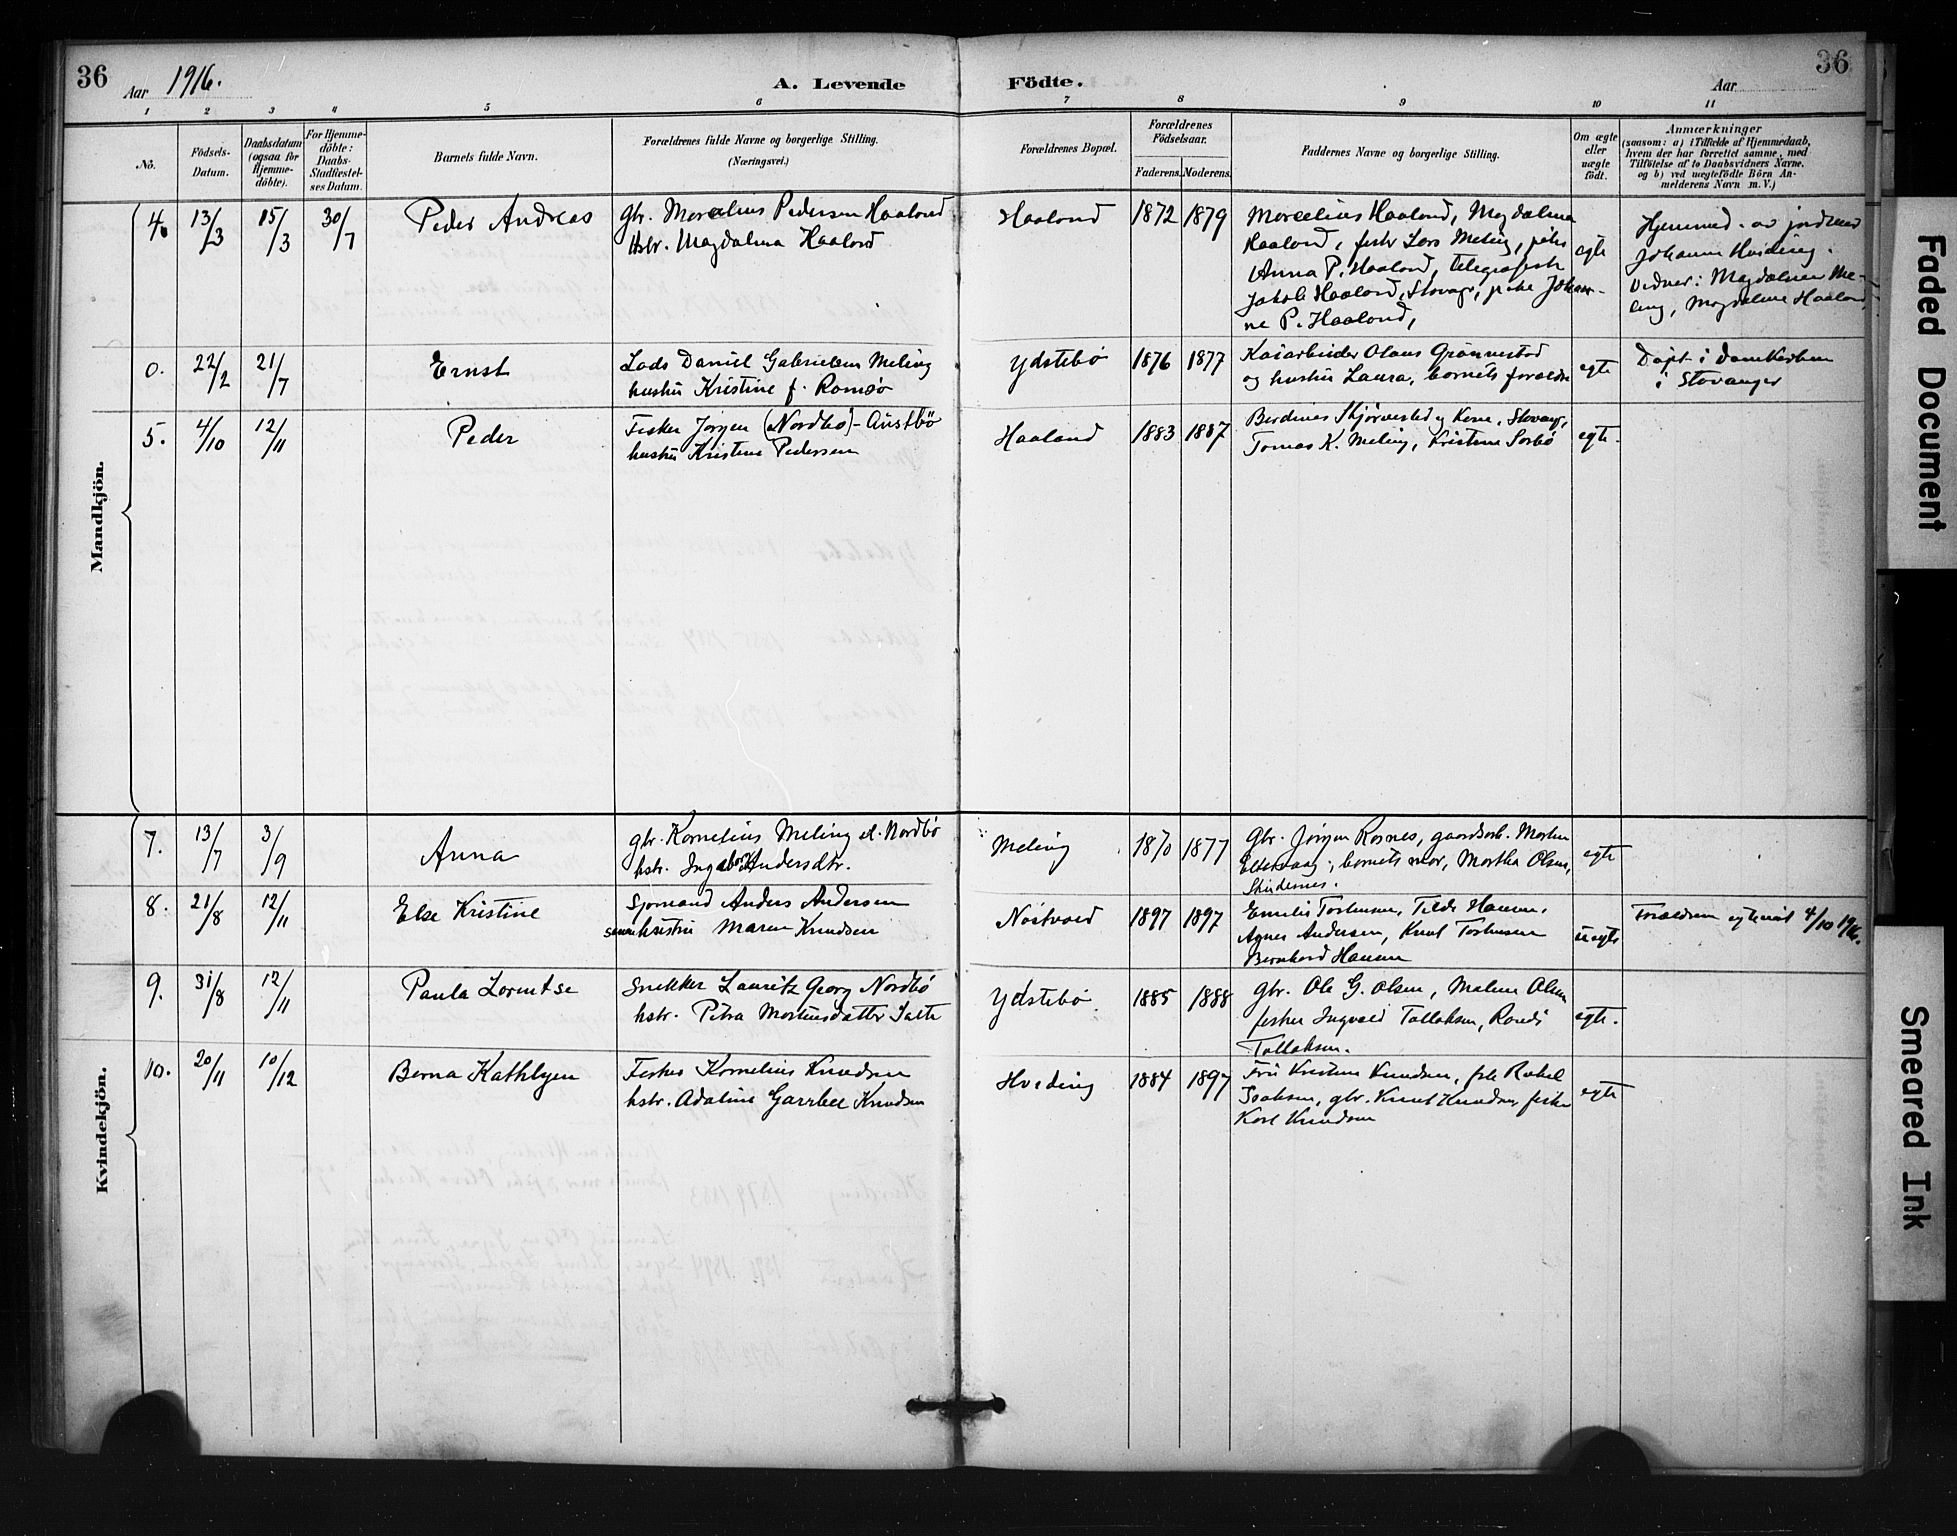 36
Aar 1916.
A. Levende Födte.
Aar
36
1 2 3 4 5 6 7 8 9 10 11
No.
Födsels-Datum.
Daabsdatum (ogsaa for Hjemme-döbte).
For Hjemme-döbte: Daabs-Stadfæstel-ses Datum.
Barnets fulde Navn.
Forældrenes fulde Navne og borgerlige Stilling.
(Næringsvei.)
Forældrenes Bopæl.
Forældrenes Födselsaar.
Faderens. Moderens.
Faddernes Navne og borgerlige Stilling.
Om ægte eller uægte födt.
Anmærkninger
(saasom: a) i Tilfælde af Hjemmedaab,
hvem der har forrettet samme, med
Tilföielse af to Daabsvidners Navne,
og b) ved uægtefödte Börn An-
melderens Navn m. V.)
Mandkjön.
4. 13/3 15/3 30/7 Peder Andreas
Gbr. Marcelius Pedersen Haaland
Hstr. Magdalena Haaland
Haaland 1872 1879
Marcelius Haaland, Magdalena
Haaland, fisker Lars Meling, pike
Anna P. Haaland, telegrafist
Jakob Haaland, Stavgr, pike Johan-
ne P. Haaland,
egte
Hjemmed. av jordmor
Johanne Hviding.
Vidner: Magdalena Me-
ling, Magdalene Haaland
0. 22/2 21/7 Ernst
Lods Daniel Gabrielsen Meling
hustru Kristine f. Ramsø
Ydstebø 1876 1877
Kaiarbeider Olaus Grønnestad
og hustru Laura, barnets forældre
egte
Døpt i Domkirken
i Stavanger
5. 4/10 12/11 Peder
Fisker Jørgen (Nordbø) - Austbø
hustru Kristine Pedersen
Haaland 1883 1887
Berdines Skjørvestad og Kone, Stavagr,
Tomas K. Meling, Kristine Sorbø
egte.
Kvindekjön.
7. 13/7 3/9 Anna
gbr. Kornelius Meling d. Nordbø
hstr. Ingeborg Andersdtr.
Meling 1870 1877
Gbr. Jörgen Rosnes, gaardsarb. Morten
barnets mor, Martha Olsen,
Skudesnes.
egte
8. 21/8 12/11 Else Kristine
Sjømand Anders Andersen
hustru Maren Knudsen
Nostvold 1897 1897
Emelie Torkensen, Tilda Hansen,
Agnes Andersen, Knut Torkensen
Bernhard Hansen
uegte
Forældrene egteviet 4/10 1916.
9. 31/8 12/11 Paula Lorentse
Snekker Lauritz Georg Nordbø
hstr. Petra Mortensdatter Salte
Ydstebø 1885 1888
Gbr. Ole G. Olsen, Malene Olsen
fisker Ingvald Tollaksen, Randi
Tollaksen.
egte.
10. 20/11 10/12 Berna Kathlyen
Fisker Kornelius Knudsen
hstr. Adaline Garrbee Knudsen
Hviding 1884 1897
Fru Kristine Knudsen, frk Rakel
Isaksen, gbr. Knut Knudsen, fisker
Karl Knudsen
egte
Faded Document
Smeared Ink